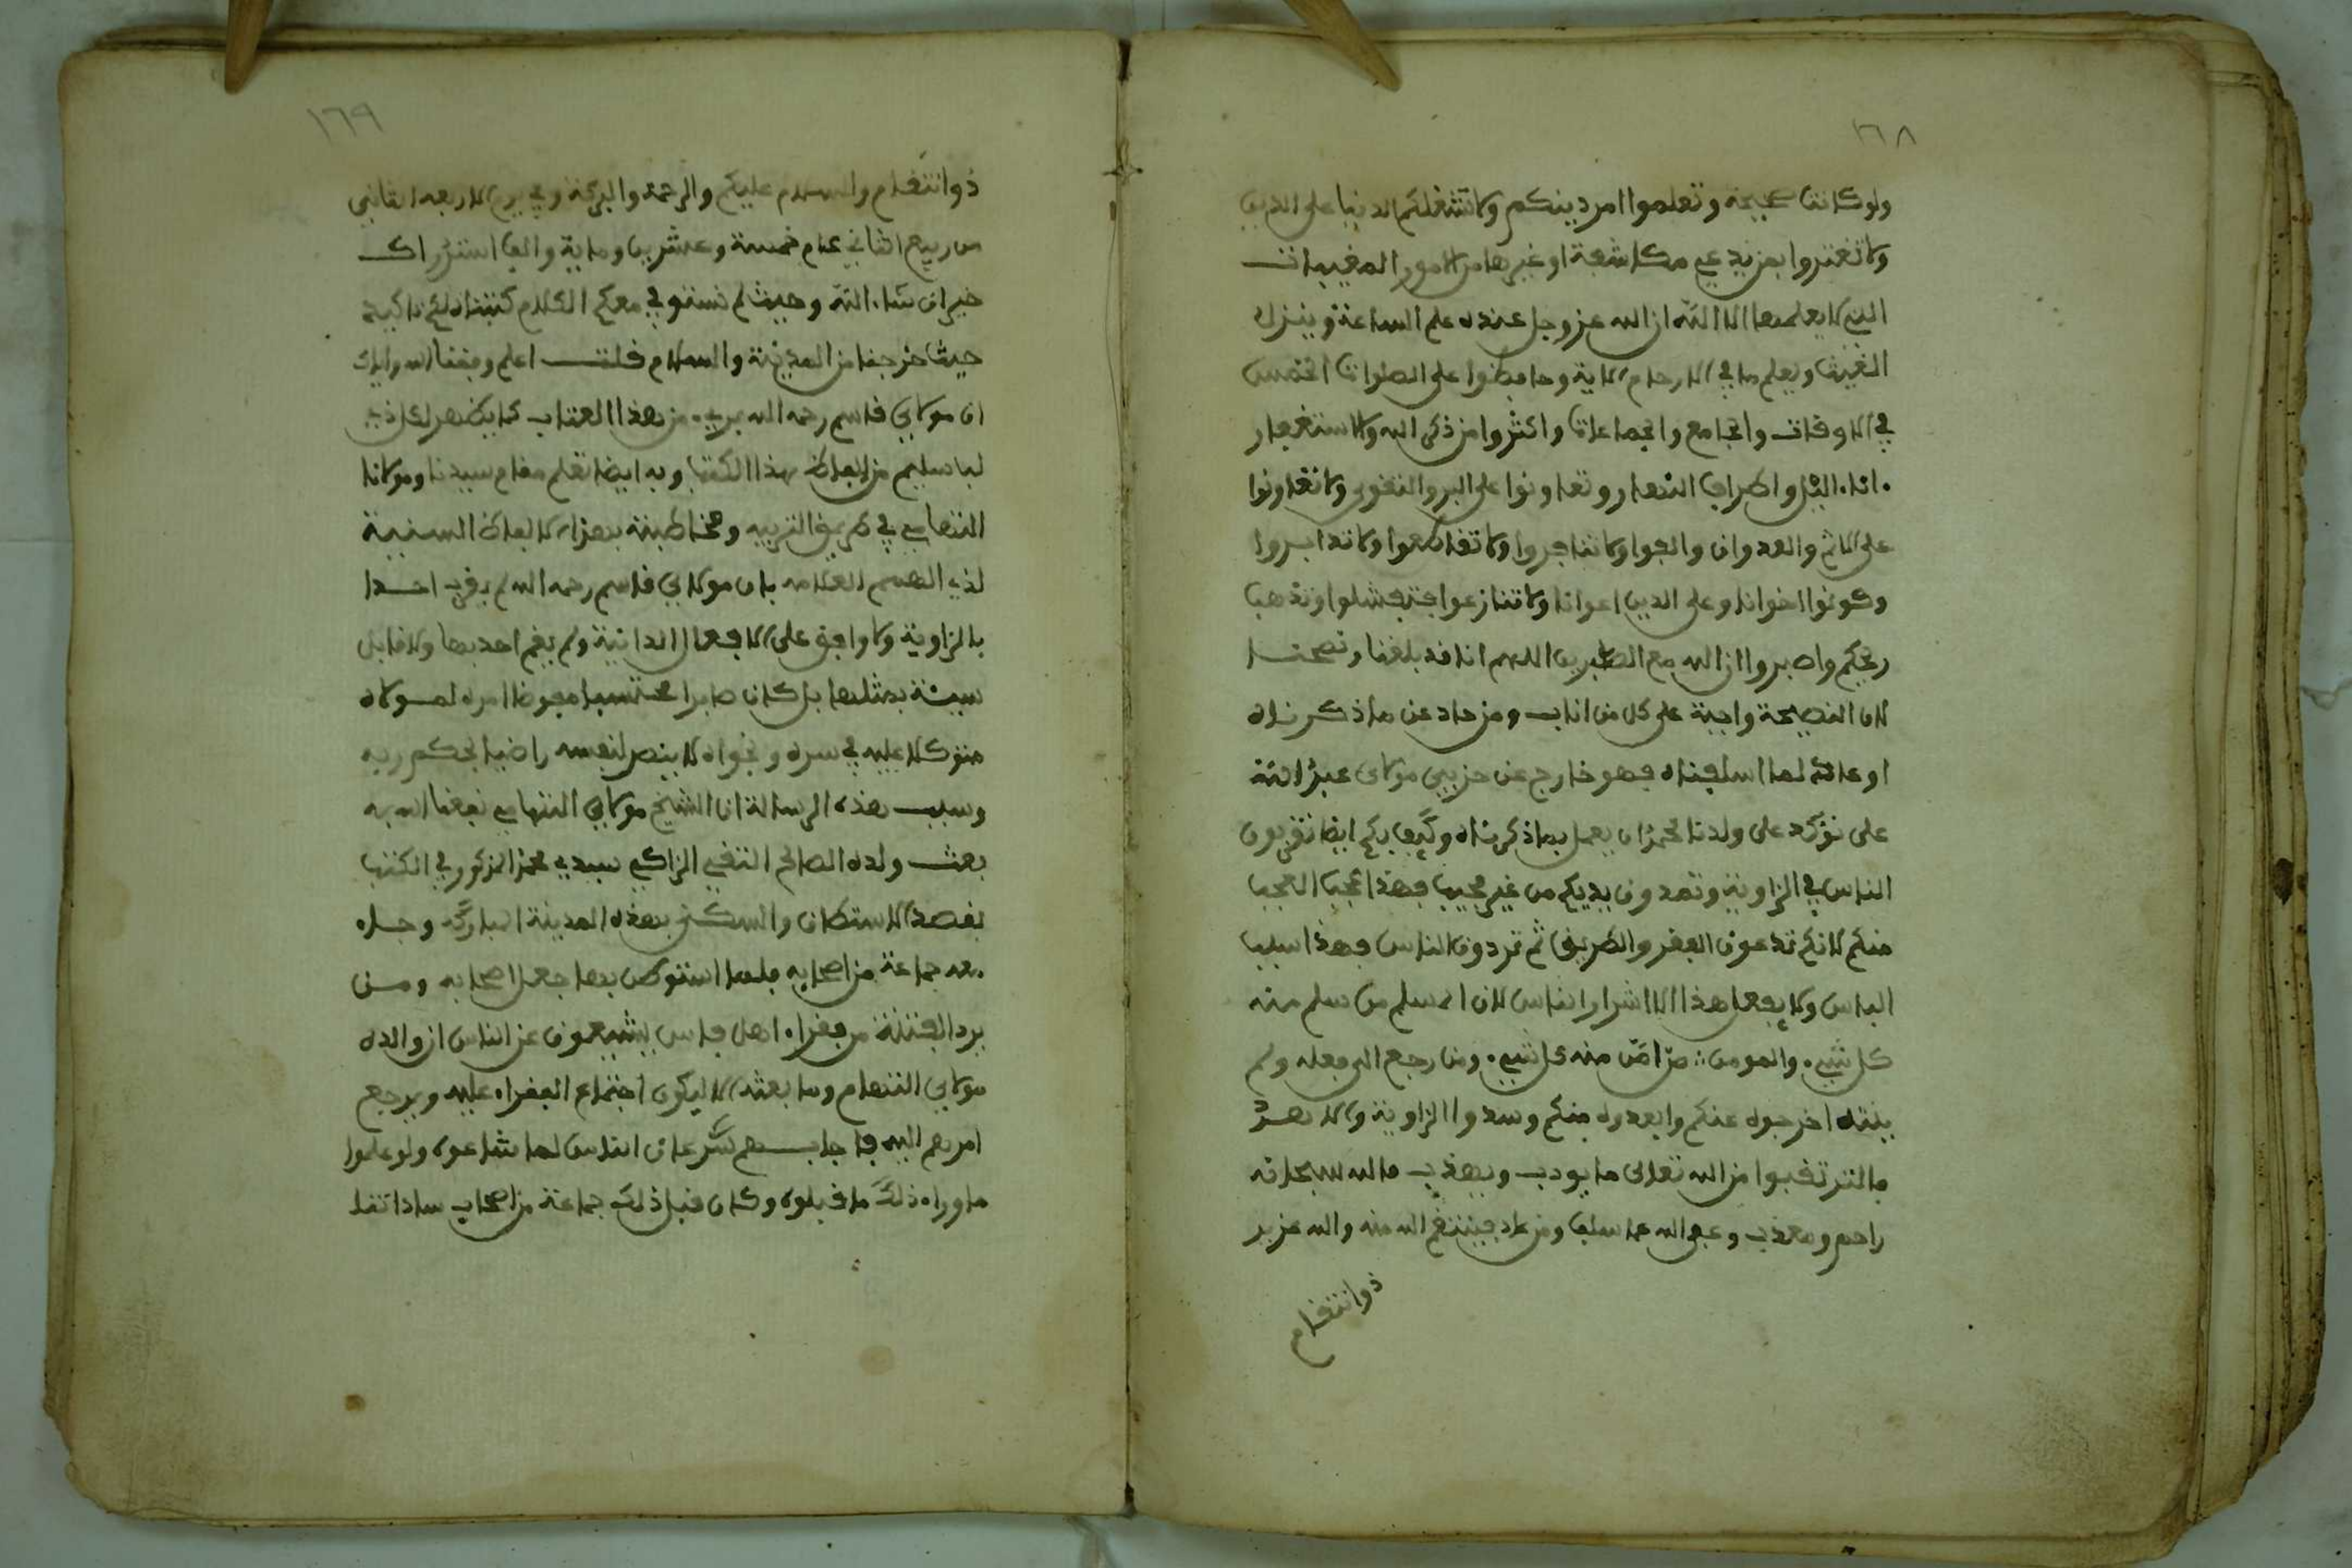 ١٦٨
ولو كانت صحيحة وتعلموا امر دينكم ولا تشغلكم الدنيا على الدين
ولا تغتروا بمن يدعي مكاشفة او غيرها من الامور المغيبات
التي لا يعلمها الا الله ان الله عز وجل عنده علم الساعة وينزل
الغيث ويعلم ما في الارحام الاية وحافظوا على الصلوات الخمس
في الاوقات والجامع والجماعات واكثروا من ذكر الله والاستغفار
اناء اليل واطراف النهار وتعاونوا على البر والتقوى ولا تعاونوا
على الاثم والعدوان ولا تناجروا ولا تقاطعوا ولا تدابروا
وكونوا اخوانا وعلى الدين اعوانا ولا تنازعوا فتفشلوا وتذهب
ريحكم واصبروا ان الله مع الصابرين اللهم انا قد بلغنا ونصحنا
لان النصيحة واجبة على كل من اناب ومن حاد عن ما ذكرناه
او عاند لما اسلفناه فهو خارج عن حزبي مولاي عبد الله
على نؤكد على ولدنا محمد ان يعمل بما ذكرناه وكيف بكم ايضا تقربون
الناس في الزاوية وتمدون يديكم من غير مجيب فهذا عجب العجب
منكم لانكم تدعون الفقر والطريق ثم تردون الناس فهذا سبب
الباس ولا يفعل هذا الا اشرار الناس لان المسلم من سلم منه
كل شيء والمومن من امن منه كل شيء ومن رجع الى فعله ولم
ينته اخرجوه عنكم وابعدوه منكم وسدوا الزاوية والا بعد
فالترتقبوا من الله تعالى ما يودب ويهذب فالله سبحانه
راحم ومعذب وعفى الله عما سلف ومن عاد فينتقم الله منه والله عزيز
ذو انتقام
١٦٩
ذو انتقام والسلام عليكم والرحمة والبركة وفي يوم الاربعاء الثاني
من ربيع الثاني عام خمسة وعشرين وماية والف استدراك
خير ان شاء الله وحيث لم نستوفي معكم الكلام كتبناه لكم تاكيدا
حيث خرجنا من المدينة والسلام قلت اعلم وفقنا الله واياك
ان مولاي قاسم رحمه الله بريء من هذا العتاب كما يظهر لكل ذي
لب سليم من الفاظ هذا الكتب وبه ايضا تعلم مقام سيدنا ومولانا
التهامي في طريق التربية ومخاطبته بهذه الالفاظ السنية
لذي الفهم العلامة بان مولاي قاسم رحمه الله لم يقرب احدا
بالزاوية ولا وافق على الافعال الدانية ولم يقم احد بها ولا قابل
سيئة بمثلها بل كان صابرا محتسبا مفوضا امره لمولاه
متوكلا عليه في سره ونجواه لا ينصر لنفسه راضيا بحكم ربه
وسبب هذه الرسالة ان الشيخ مولاي التهامي نفعنا الله به
بعث ولده الصالح التقي الزاكي سيدي محمد المذكور في الكتب
بقصد الاستطان والسكنى بهذه المدينة المباركة وجاء
معه جماعة من اصحابه فلما استوطن بها جعل اصحابه ومن
يرد الفتنة من فقراء اهل فاس يشيعون عن الناس ان والده
مولاي التهام وما بعثه الا ليكون اجتماع الفقراء عليه ويرجع
امرهم اليه فاجابهم شرعان الناس لما شاعوه ولو علموا
ما وراء ذلك ما قبلوه وكان قبل ذلك جماعة من اصحاب ساداتنا